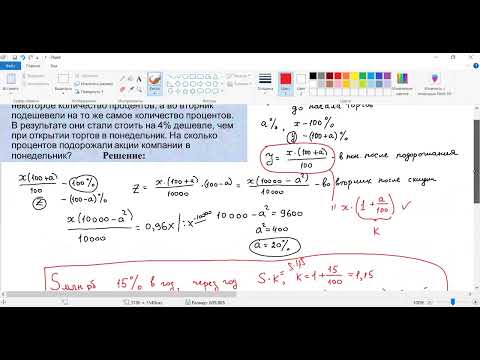 Paint
Файл
Главная
Вид
Буфер обмена
Изображение
Инструменты
Фигуры
Цвета
некоторое количество процентов, а во вторник
подешевели на то же самое количество процентов.
В результате они стали стоить на 4% дешевле, чем
при открытии торгов в понедельник. На сколько
процентов подорожали акции компании в
понедельник? Решение:
до начала торгов
a%: x - 100%
y - (100+a)%
y = x·(100+a) / 100 - в пон. после подорожания
x(100+a) / 100 - 100%
z - (100-a)%
z = x·(100+a) / 10000 · (100-a) = x(10000 - a²) / 10000 - во вторник после скидки
x(10000 - a²) / 10000 = 0,96x | : x · 10000
10000 - a² = 9600
a² = 400
a = 20%
x · (1 + a/100) ✓
K
S млн рб 15% в год, через год S·K, K = 1 + 15/100 = 1,15
S·1,15
100%